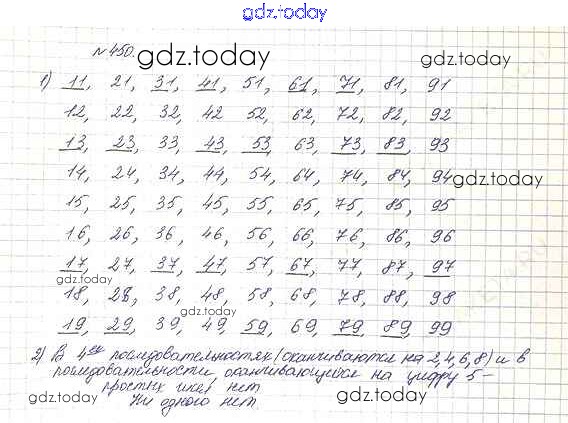 gdz.today
№ 450.
gdz.today
gdz.today
1) 11, 21, 31, 41, 51, 61, 71, 81, 91
12, 22, 32, 42 52, 62, 72, 82, 92
13, 23, 33, 43, 53, 63, 73, 83, 93
14, 24, 34, 44, 54, 64, 74, 84, 94
gdz.today
15, 25, 35, 45, 55, 65, 75, 85, 95
16, 26, 36, 46, 56, 66, 76, 86, 96
17, 27, 37, 47, 57, 67, 77, 87, 97
gdz.today
gdz.today
18, 28, 38, 48, 58, 68, 78, 88, 98
19, 29, 39, 49, 59, 69, 79, 89, 99
2) В 4ех последовательностях (оканчиваются на 2, 4, 6, 8) и в
последовательности оканчивающейся на цифру 5 -
простых чисел нет
Ни одного нет
gdz.today
gdz.today